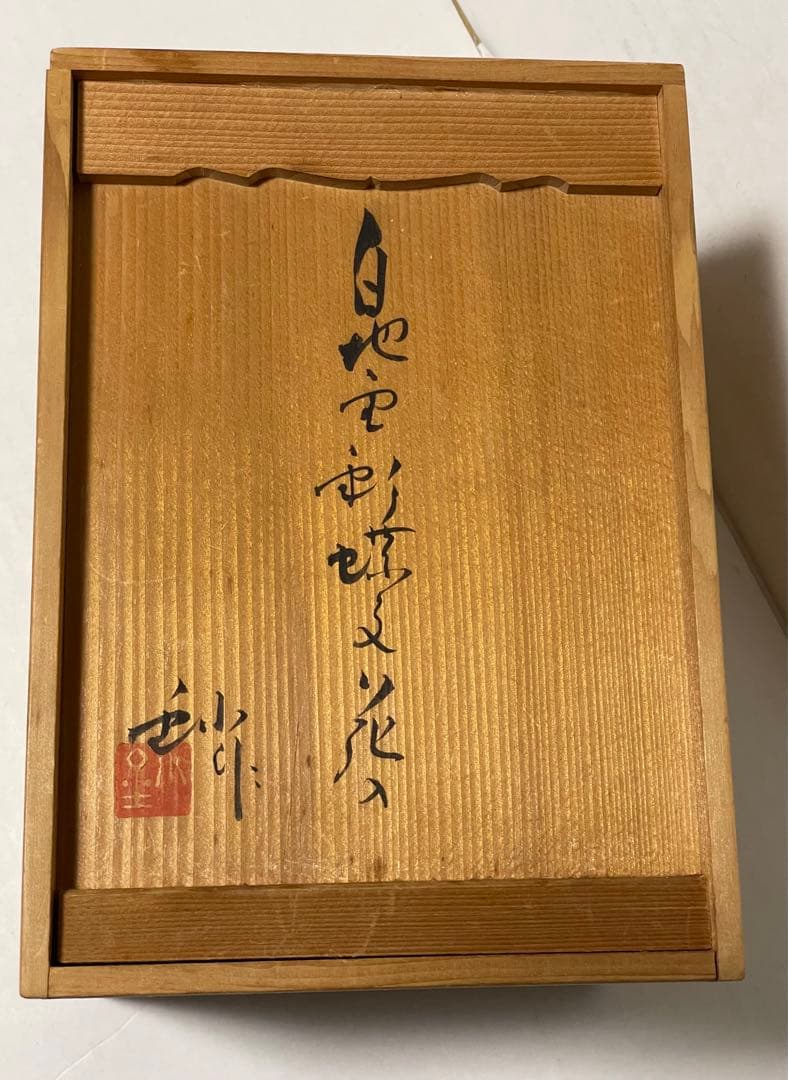 白地雲彩蝶文花入
作